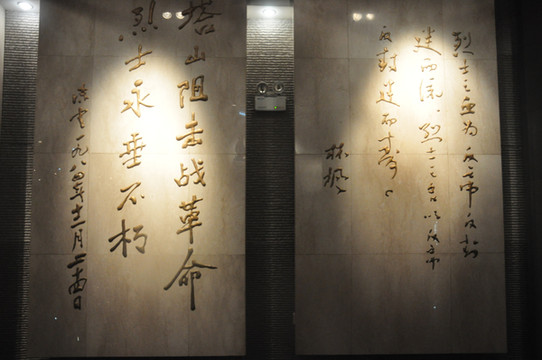 烈士之血为反帝反封
建而流,烈士之名以反帝
反封建而寿。
林枫
塔山阻击战革命
烈士永垂不朽
陈云一九八 年十 月